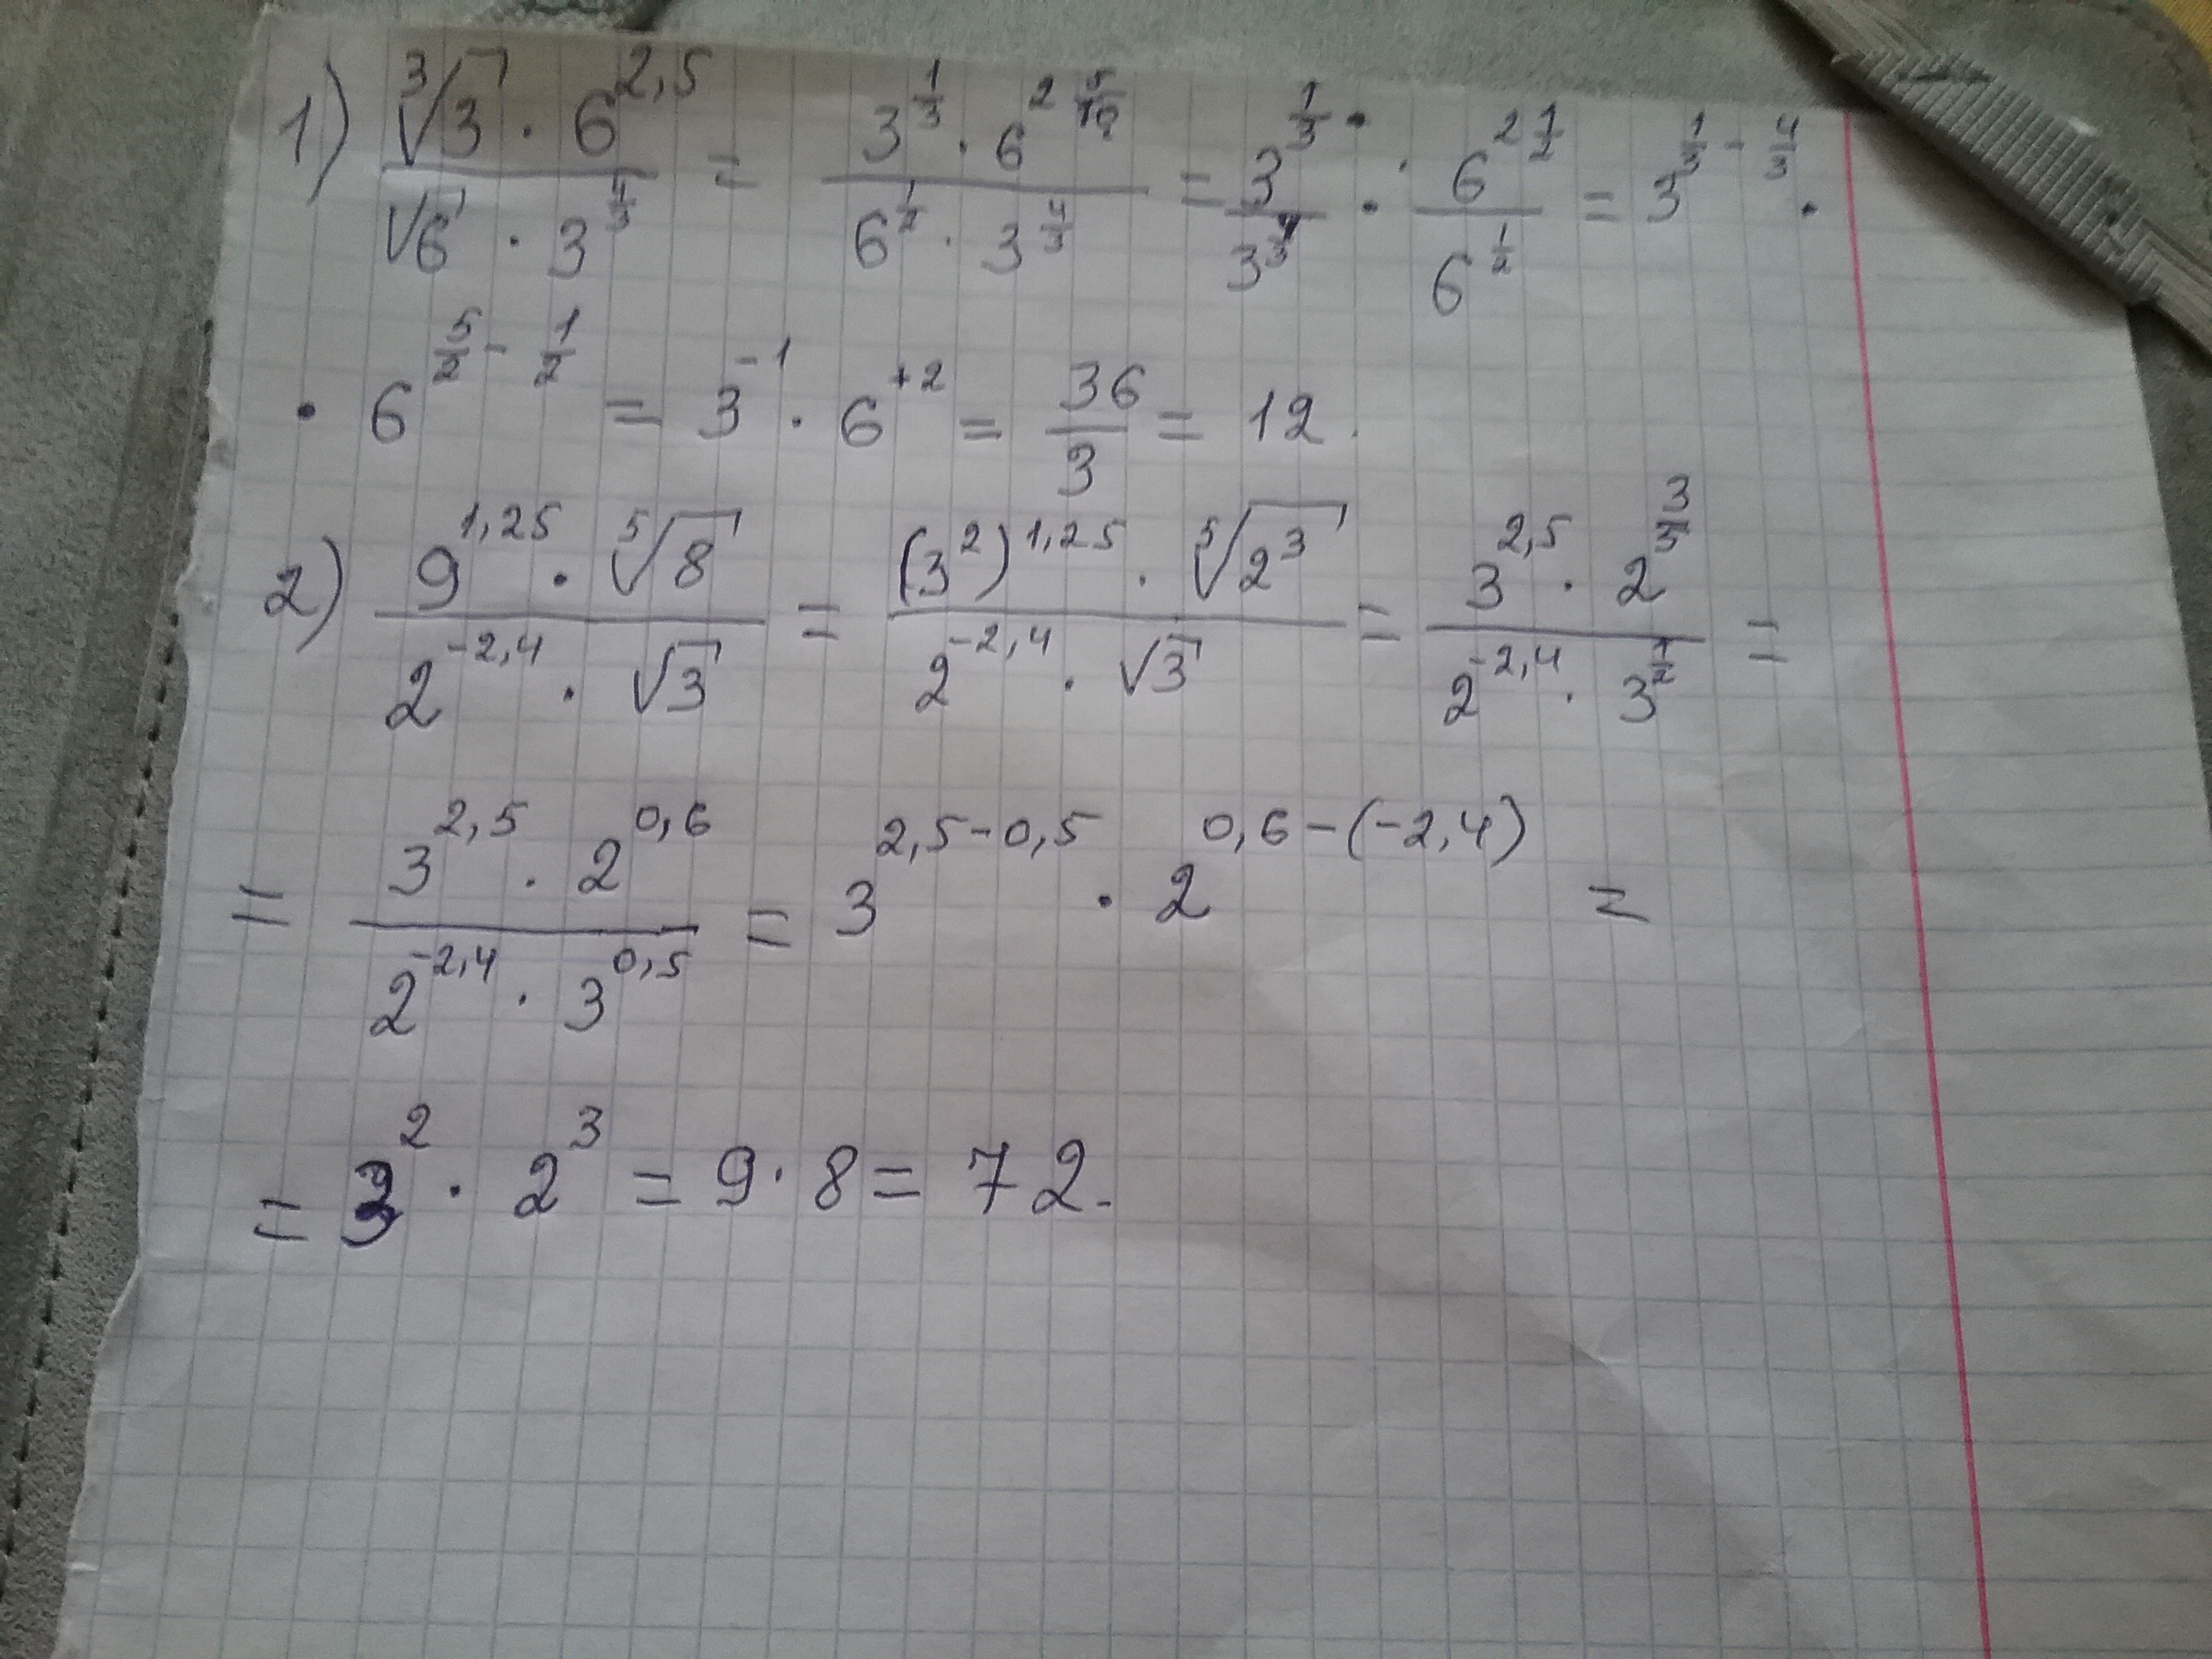 1) (∛3 · 6^2,5)/(√6 · 3^(4/3)) = (3^(1/3) · 6^(2 5/10))/(6^(1/2) · 3^(4/3)) = 3^(1/3)/3^(4/3) · 6^(2 1/2)/6^(1/2) = 3^(1/3 - 4/3) ·
· 6^(5/2 - 1/2) = 3^-1 · 6^+2 = 36/3 = 12.
2) (9^1,25 · ⁵√8)/(2^-2,4 · √3) = ((3^2)^1,25 · ⁵√2^3)/(2^-2,4 · √3) = (3^2,5 · 2^(3/5))/(2^-2,4 · 3^(1/2)) =
= (3^2,5 · 2^0,6)/(2^-2,4 · 3^0,5) = 3^(2,5-0,5) · 2^(0,6-(-2,4)) =
= 3^2 · 2^3 = 9 · 8 = 72.